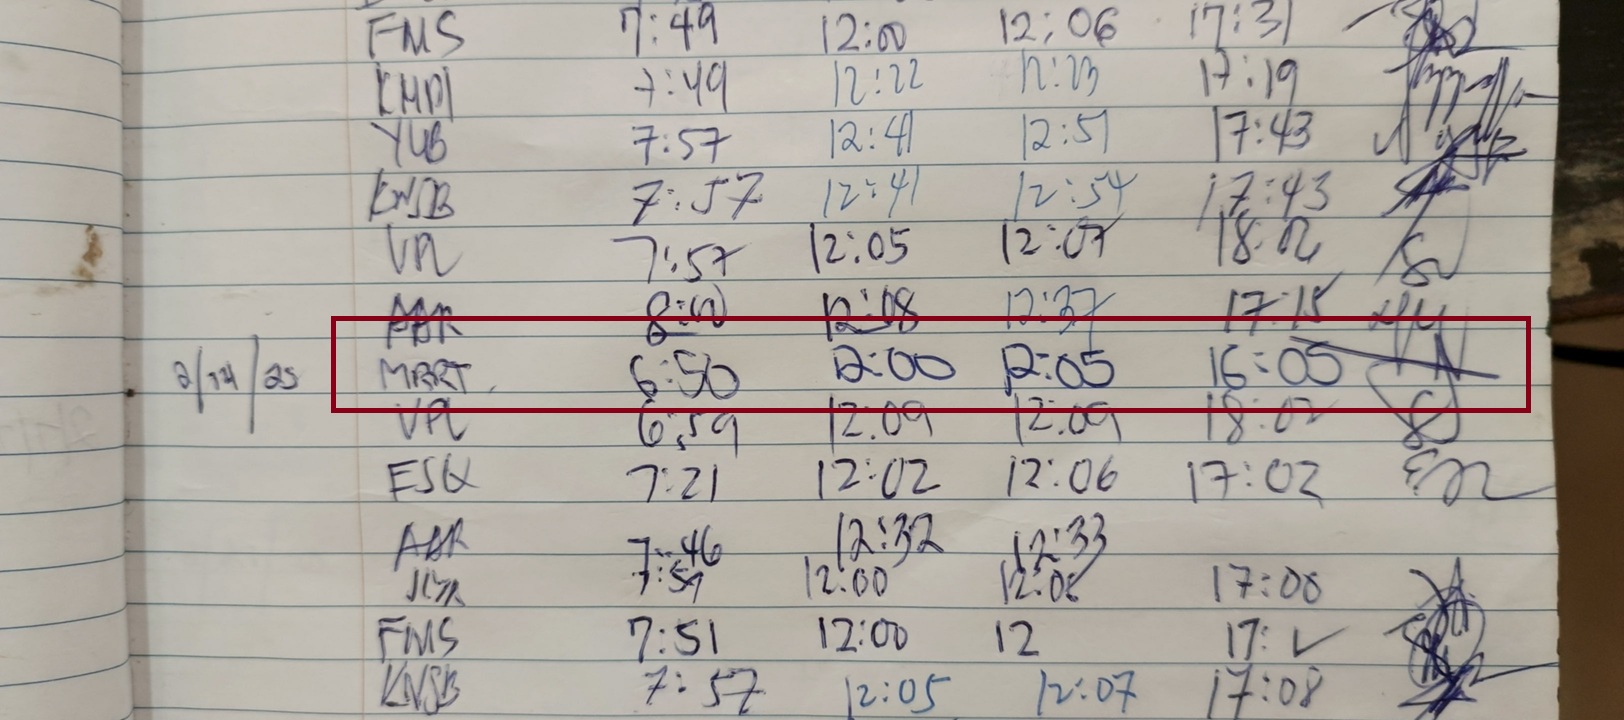 FMS 7:49 12:00 12:06 17:31
KMDI 7:49 12:22 12:23 17:19
YUB 7:57 12:41 12:51 17:43
KNSB 7:57 12:41 12:54 17:43
VPL 7:57 12:05 12:07 18:02
ABR 8:00 12:08 12:37 17:15
2/14/25 MBRT 6:50 12:00 12:05 16:05
VPL 6:59 12:09 12:09 18:02
ESQ 7:21 12:02 12:06 17:02
ABR 7:46 12:32 12:33
7:59 12:00 12:06 17:00
FMS 7:51 12:00 12 17:
KNSB 7:57 12:05 12:07 17:08